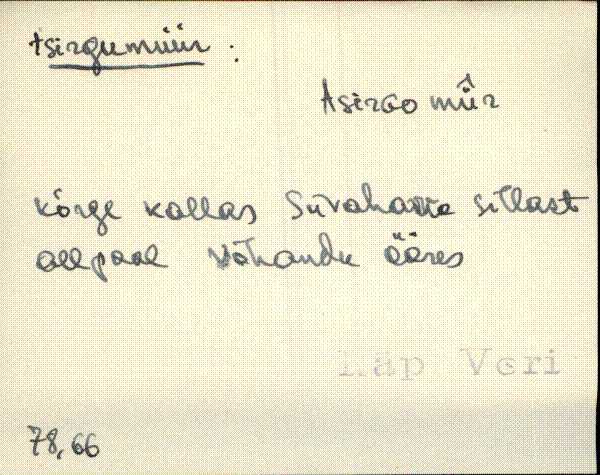 tsirgumüür :
tsirgo müˆr
kõrge kallas Süvahavva sillast
allpool Võhandu ääres
Räp Veri
78,66